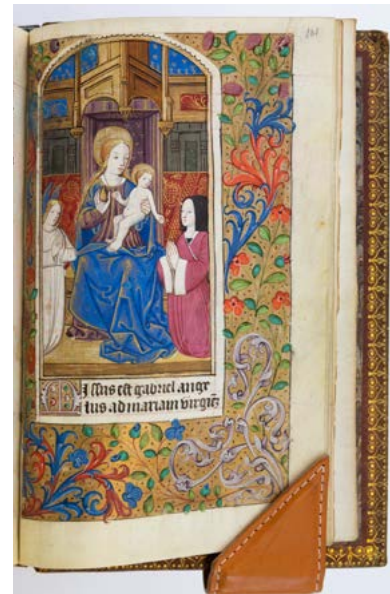 Missus est gabriel ange
lus ad mariam virginē